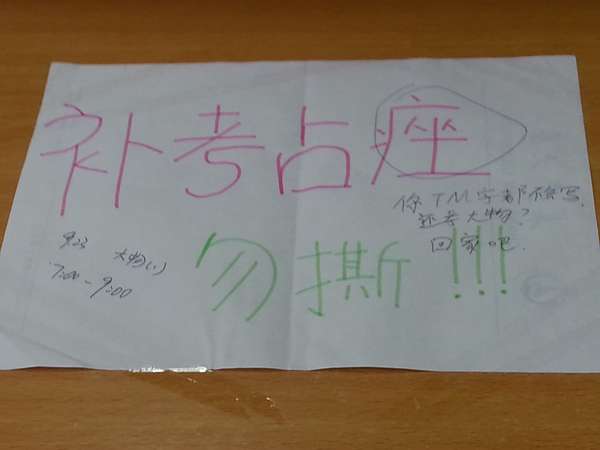 补考占痤
你TM字都不会写,
还考大物?
回家吧.
9.23 大物(1)
7:00-9:00
勿撕!!!